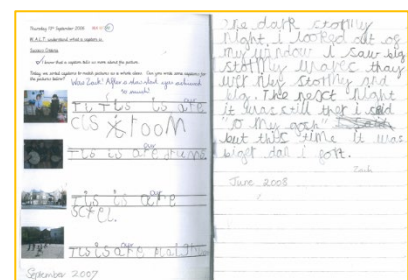 Thursday 13th September 2008
W.A.L.T. understand what a caption is.
Success Criteria
I know that a caption tells us more about the picture.
Today, we sorted captions to match pictures as a whole class. Can you write some captions for the pictures below?
Wow Zach! After a few days you achieved so much!
Tis is are
clsroom
our
Tis is are drums.
our
Tis is are
scel.
our
Tis is are
September 2007
the dark stormy
night. I looked out of
my window I saw big
stormy waves they
big. The next night
it was still ther I sad
"o my gosh!
but this time it was
Zach
June 2008